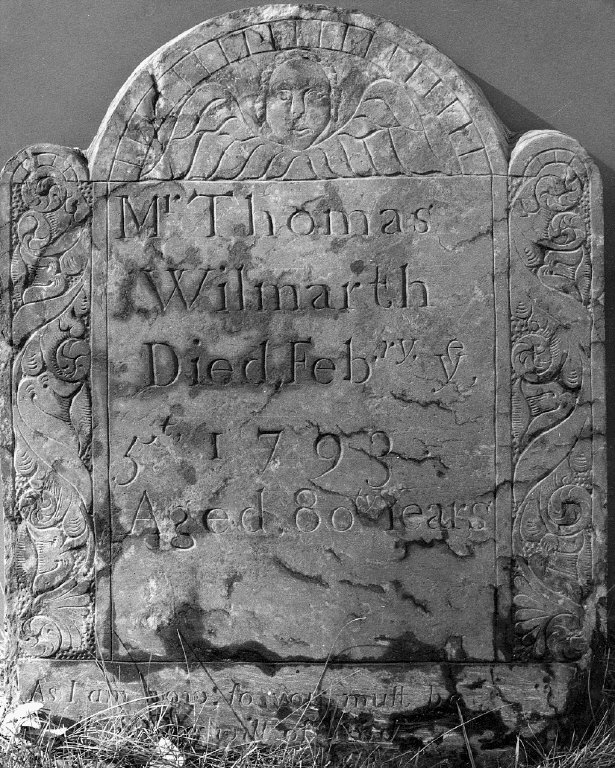 Mr Thomas
Wilmarth
Died, Feb,ry, ye
5th 1793
Aged, 80 Years
As I am now, so you must be